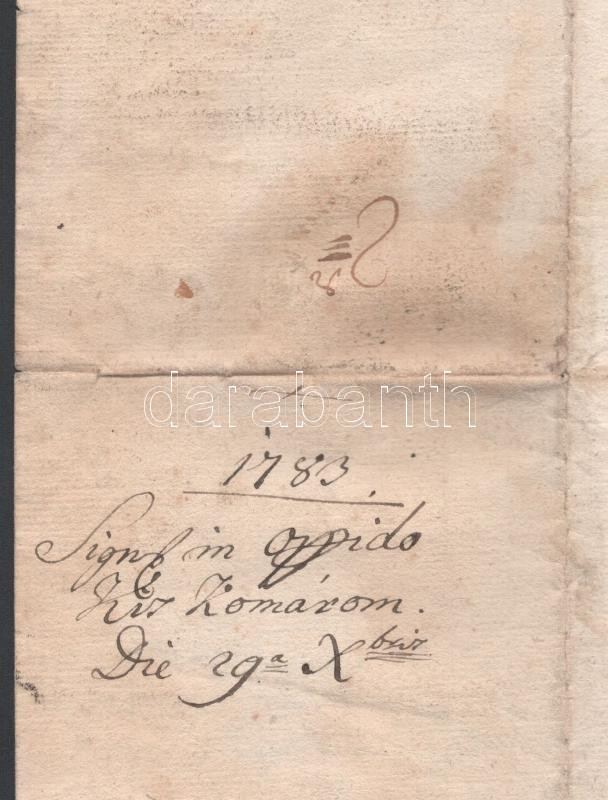 darabanth
1783.
Sign in Oppido
Kis Komárom.
Die 29ª Xbris